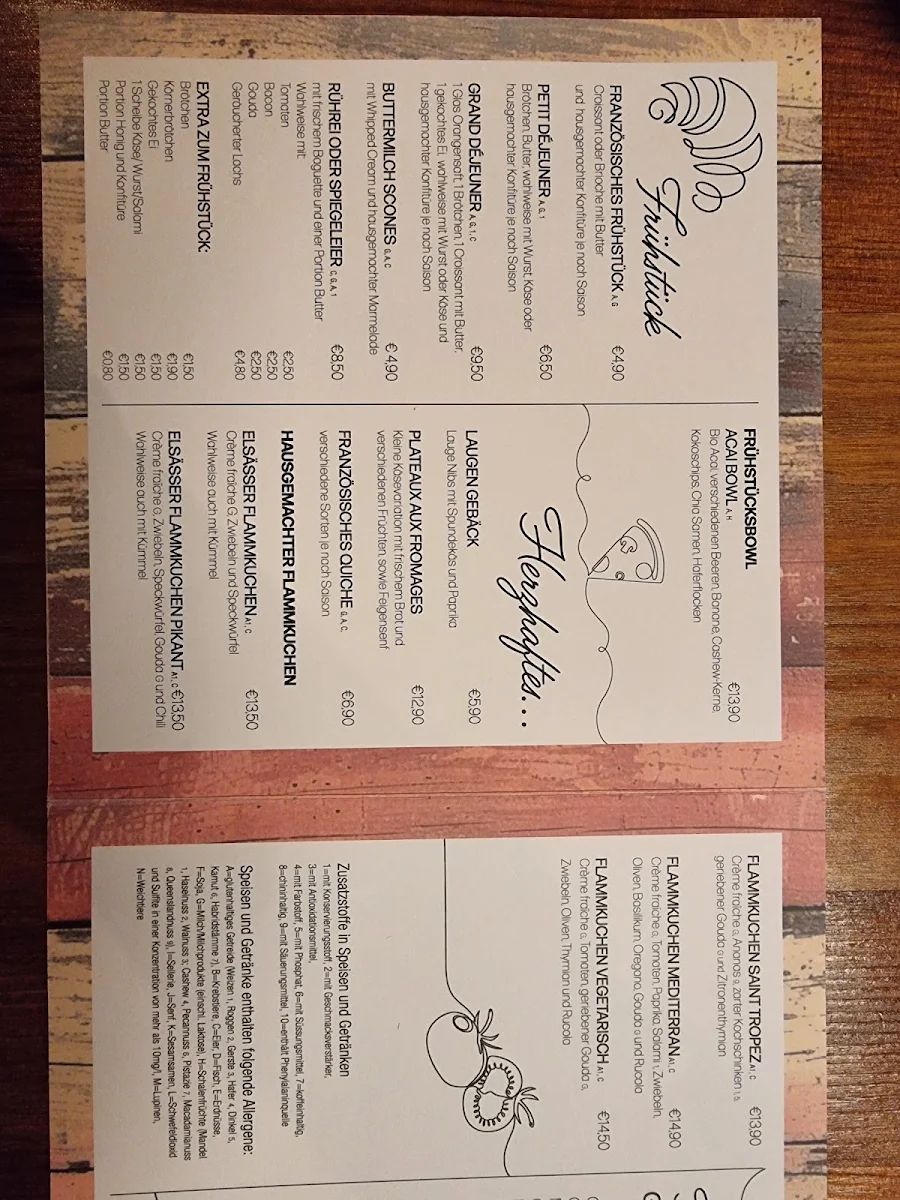 Frühstück
FRANZÖSISCHES FRÜHSTÜCK A, G €4,90
Croissant oder Brioche mit Butter
und hausgemachter Konfitüre je nach Saison
PETIT DÉJEUNER A, G, 1 €6,50
Brötchen, Butter, wahlweise mit Wurst, Käse oder
hausgemachter Konfitüre je nach Saison
GRAND DÉJEUNER A, G, 1, C €9,50
1 Glas Orangensaft, 1 Brötchen, 1 Croissant mit Butter,
1 gekochtes Ei, wahlweise mit Wurst oder Käse und
hausgemachter Konfitüre je nach Saison
BUTTERMILCH SCONES G, A, C € 4,90
mit Whipped Cream und hausgemachter Marmelade
RÜHREI ODER SPIEGELEIER C, G, A, 1 €8,50
mit frischem Baguette und einer Portion Butter
Wahlweise mit:
Tomaten €2,50
Bacon €2,50
Gouda €2,50
Geräucherter Lachs €4,80
EXTRA ZUM FRÜHSTÜCK:
Brötchen €1,50
Körnerbrötchen €1,90
Gekochtes Ei €1,50
1 Scheibe Käse/ Wurst/Salami €1,50
Portion Honig und Konfitüre €1,50
Portion Butter €0,80
FRÜHSTÜCKSBOWL
ACAI BOWL A, H €13,90
Bio Acai, verschiedenen Beeren, Banane, Cashew-Kerne,
Kokoschips, Chia Samen, Haferflocken
Herzhaftes...
LAUGEN GEBÄCK €5,90
Lauge Nibs mit Spundekäs und Paprika
PLATEAUX AUX FROMAGES €12,90
Kleine Käsevariation mit frischem Brot und
verschiedenen Früchten, sowie Feigensenf
FRANZÖSISCHES QUICHE G, A, C €6,90
verschiedene Sorten, je nach Saison
HAUSGEMACHTER FLAMMKUCHEN
ELSÄSSER FLAMMKUCHEN A1, C €13,50
Crème fraîche G, Zwiebeln und Speckwürfel
Wahlweise auch mit Kümmel
ELSÄSSER FLAMMKUCHEN PIKANT A1, C €13,50
Crème fraîche G, Zwiebeln, Speckwürfel, Gouda G und Chili
Wahlweise auch mit Kümmel
FLAMMKUCHEN SAINT TROPEZ A1, C €13,90
Crème fraîche G, Ananas 9, zarter Kochschinken 1, 5,
geriebener Gouda G und Zitronenthymian
FLAMMKUCHEN MEDITERRAN A1, C €14,90
Crème fraîche G, Tomaten, Paprika, Salami 1, Zwiebeln,
Oliven, Basilikum, Oregano, Gouda G und Rucola
FLAMMKUCHEN VEGETARISCH A1, C €14,50
Crème fraîche G, Tomaten, geriebener Gouda G,
Zwiebeln, Oliven, Thymian und Rucola
Zusatzstoffe in Speisen und Getränken
1=mit Konservierungsstoff, 2=mit Geschmacksverstärker,
3=mit Antioxidationsmittel,
4=mit Farbstoff, 5=mit Phosphat, 6=mit Süssungsmittel, 7=koffeinhaltig,
8=chininhaltig, 9=mit Säuerungsmittel, 10=enthält Phenylalaninquelle
Speisen und Getränke enthalten folgende Allergene:
A=glutenhaltiges Getreide (Weizen 1, Roggen 2, Gerste 3, Hafer 4, Dinkel 5,
Kamut 6, Habridstämme 7), B=Krebstiere, C=Eier, D=Fisch, E=Erdnüsse,
F=Soja, G=Milch/Milchprodukte (einschl. Laktose), H=Schalenfrüchte (Mandel
1, Haselnuss 2, Walnuss 3, Cashew 4, Pecannuss 5, Pistazie 7, Macadamianuss
8, Queenslandnuss 9), I=Sellerie, J=Senf, K=Sesamsamen, L=Schwefeldioxid
und Sulfite in einer Konzentration von mehr als 10mg/l, M=Lupinen,
N=Weichtiere